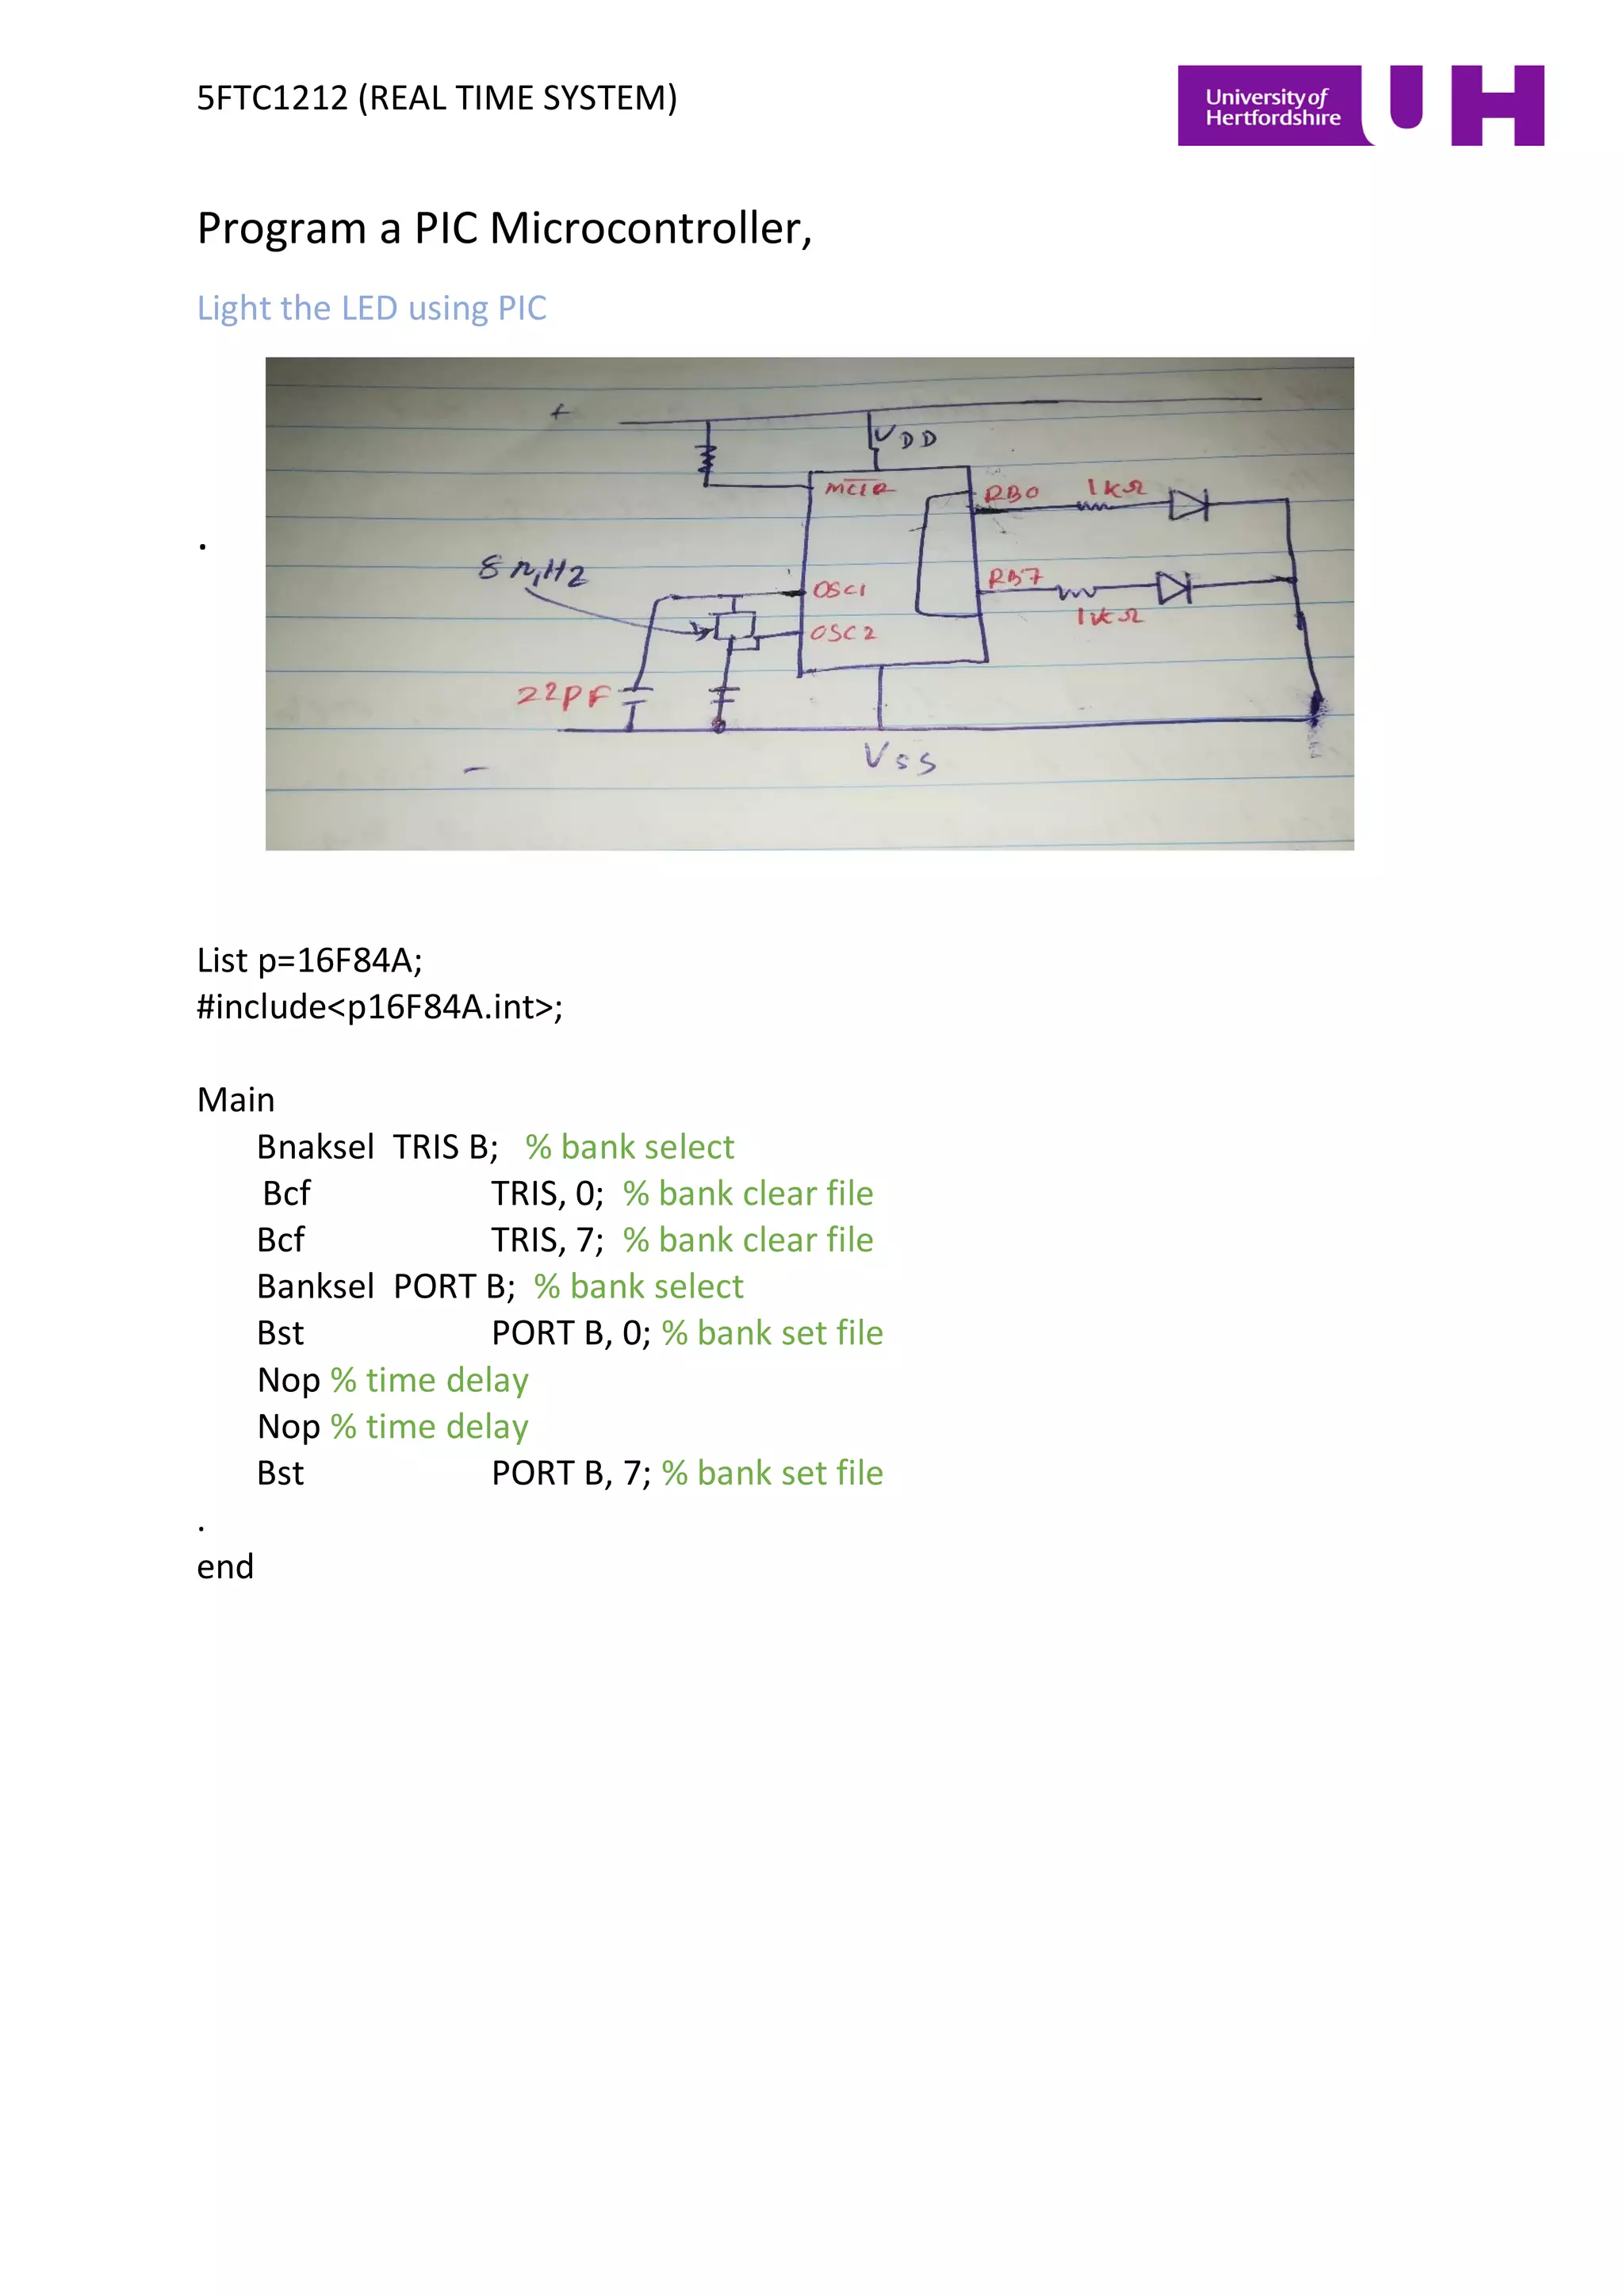 5FTC1212 (REAL TIME SYSTEM)
University of
Hertfordshire
UH
Program a PIC Microcontroller,
Light the LED using PIC
+
VDD
MCLR
RB0
1KΩ
8 MHz
OSC1
RB7
1KΩ
OSC2
22PF
VSS
-
.
List p=16F84A;
#include<p16F84A.int>;
Main
Bnaksel TRIS B; % bank select
Bcf TRIS, 0; % bank clear file
Bcf TRIS, 7; % bank clear file
Banksel PORT B; % bank select
Bst PORT B, 0; % bank set file
Nop % time delay
Nop % time delay
Bst PORT B, 7; % bank set file
.
end